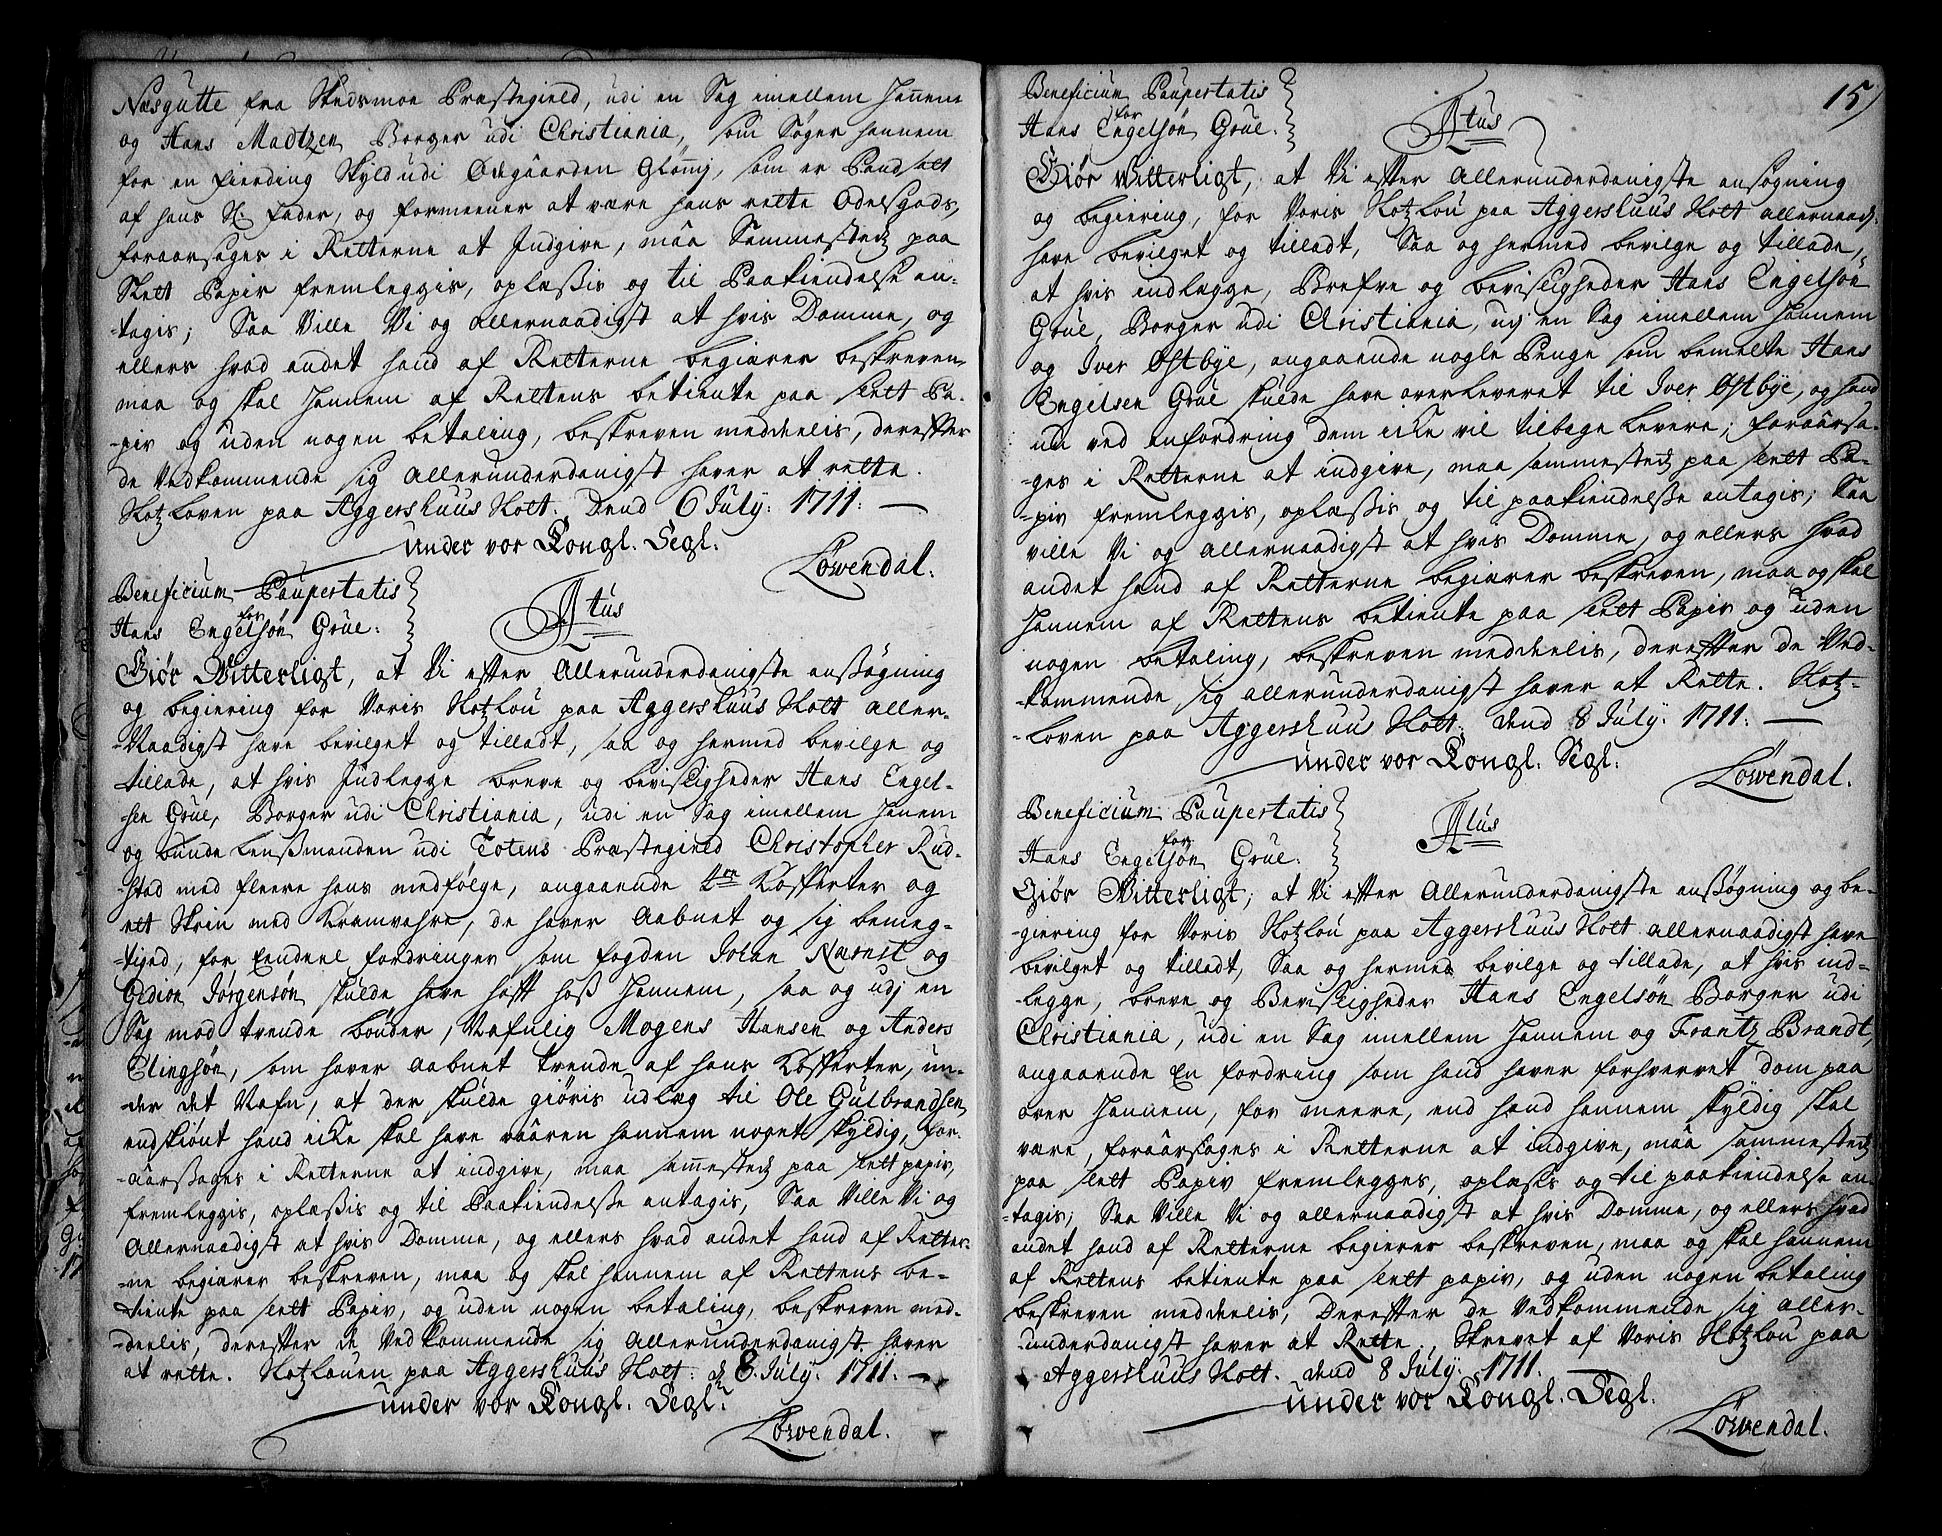 Næsgutte fra Skedsmoe Præstegield, udi en Sag imellem Hannem
og Hans Madtzen Borger udi Christiania, som Søger hannem
for en fierding Skyld udi Ødegaarden, som er Pandsatt
af hans Sl. Fader, og formeener at være hans rette Odelsgods,
foraarsages i Retterne at Indgive, maa Sammestedz paa
Slett Papir fremleggis, oplæssis og til Paakiendelse an-
-tagis; Saa Ville Vi og allernaadigst at hvis Domme, og
ellers hvad andet hand af Retterne begiærer beskreven
maa og skal Hannem af Rettens betiente paa slett Pa-
-pir og uden nogen betaling, beskreven meddeelis, derefter
de Vedkommende sig allerunderdanigst haver at rette.
Slotzloven paa Aggershuus Slott. Dend 6 July: 1711:
under vor Kongl. Segl.
Løwendal.
Beneficium Paupertatis
for
Hans Engelsøn Grue.
Atus
Giør Witterligt, at Vi efter Allerunderdanigste anssøgning
og begiering for Voris Slotzlou paa Aggershuus Slott aller-
-Naadigst have bevilget og tilladt, saa og hermed bevilge og
tillade, at hvis Indlegge breve og bevisligheder Hans Engel-
-sen Grue, Borger udi Christiania, udi en Sag imellem Hanem
og bunde Lenssmanden udi Totens Præstegield Christopher Rud-
-stad med fleere hans medfølge, angaaende 4re Kofferter og
ett Skrin med Kramvahre, de haver Aabnet og sig bemeg-
-tiged, for Eendeel fordringer som fogden Joten Narnst og
Gedion Jørgensøn skulde have hafft hoss Hannem, saa og udj en
Sag mod trende bønder, Nafnlig Mogens Hansen og Anders
Elingsøn, som haver Aabnet trende af hans Kofferter, un-
-der det Nafn, at der skulde giøris udlæg til Ole Gulbrandsen
endskiønt hand icke skal have vaaren hannem noget skyldig, for-
-aarssages i Retterne at indgive, maa samestedz paa slett papir,
fremleggis, oplæssis og til Paakiendelsse antagis, Saa Ville Vi og
Allernaadigst at hvis Domme, og ellers hvad andet hand af Retter-
-ne begiærer beskreven, maa og skal hannem af Rettens be-
-tiente paa slett Papir, og uden nogen betaling, beskreven med-
-deelis, derefter de Vedkommende sig Allerunderdanigst haver
at rette. Slotzlouen paa Aggershuus Slott: d 8. July. 1711.
under vor Kongl. Segl.
Løwendal.
15)
Beneficium Paupertatis
for
Hans Engelsøn Grue.
Atus
Giør Witterligt, at Vi efter Allerunderdanigste ansøgning
og begiering, for Voris Slotzlou paa Aggershuus Slott allernaadj:
have bevilget og tilladt, Saa og hermed bevilge og tillade,
at hvis indlegge, Brefve og bevisligheder Hans Engelsøn
Grue, Borger udi Christiania, udj en Sag imellem Hannem
og Iver Østbye, angaaende nogle Penge som bemelte Hans
Engelsen Grue skulde have overleveret til Iver Østbye, og hand
nu ved anfordring dem icke vil tilbage levere; foraarsa-
-ges i Retterne at indgive, maa sammestedz paa slett Pa-
-pir fremleggis, oplæssis og til paakiendelsse antagis; Saa
ville Vi og allernaadigst at hves Domme, og ellers hvad
andet hand af Retterne begiærer beskreven, maa og skal
Hannem af Rettens betiente paa slett Papir og uden
nogen betaling, beskreven meddeelis, derefter de Ved-
-kommende sig allerunderdanigst haver at Rette. Slotz-
-loven paa Aggershuus Slott. dend 8 July. 1711.
under vor Kongl. Segl.
Løwendal.
Beneficium Paupertatis
for
Hans Engelsøn Grue.
Atus
Giør Witterligt, at Vi efter Allerunderdanigste anssøgning og be-
-giering for Voris Slotzlou paa Aggershuus Slott allernaadigst have
bevilget og tilladt, Saa og hermed bevilge og tillade, at hvis ind-
-legge, breve og Bevisligheder Hans Engelsøn Borger udi
Christiania, udi en Sag imellem Hannem og Frantz Brandt,
angaaende En fordring som hand haver forhvervet dom paa
over Hannem, for meere, end hand hannem skyldig skal
være, foraarsages i Retterne at indgive, maa sammestedz
paa slett Papir fremlegges, oplæses og til paakiendelse an-
-tagis; Saa Ville Vi og allernaadigst at hvis Domme, og ellers hvad
andet hand af Retterne begierer beskreven, maa og skal hannem
af Rettens betiente paa slett papir, og uden nogen betaling
beskreven meddeelis, Derefter de Vedkommende sig aller-
-underdanigst haver at Rette. Skrevet af Voris Slotzlou paa
Aggershuus Slott. dend 8 July. 1711.
under vor Kongl. Segl.
Løwendal.